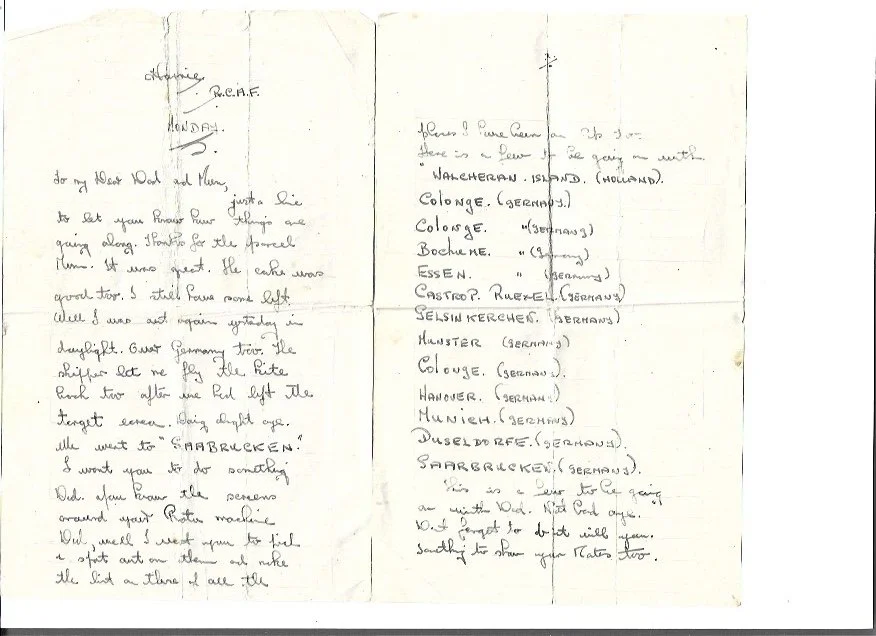 R.C.A.F.
MONDAY.
To my Dear Dad and Mum,
just a line
to let you know how things are
going along. Thanks for the parcel
Mum. It was great. The cake was
good too. I still have some left.
Well I was out again yestaday in
daylight. Over Germany too. The
skipper let me fly the kite
back too after we had left the
target eerea. Doing alright aye.
We went to "SAABRUCKEN."
I want you to do something
Dad. You know the screens
around your machine
Dad, well I want you to pick
a spot out on them and make
the list on there of all the
places I have been on Up To-
Here is a few to be going on with
" WALCHERAN. ISLAND. (HOLLAND).
COLONGE. (GERMANY.)
COLONGE. "(GERMANY)
BOCHEME. " (Germany)
ESSEN. " (GERMANY)
CASTROP. RUEXEL. (GERMANY)
GELSINKERCHEN. (GERMANY)
MUNSTER (GERMANY)
COLONGE. (GERMANY).
HANOVER. (GERMANY)
MUNICH. (GERMANY)
DUSELDORFE. (GERMANY).
SAARBRUCKEN. (GERMANY).
This is a few to be going
on with Dad. Not bad aye.
Dont forget to do it will you.
Somthing to show your Mates too.